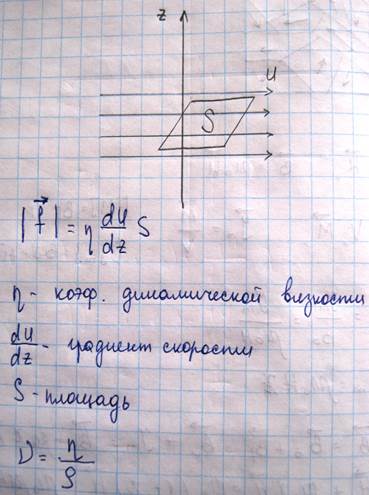 z
u
S
|f⃗| = η du/dz S
η - коэф. динамической вязкости
du/dz - градиент скорости
S - площадь
ν = η/ρ